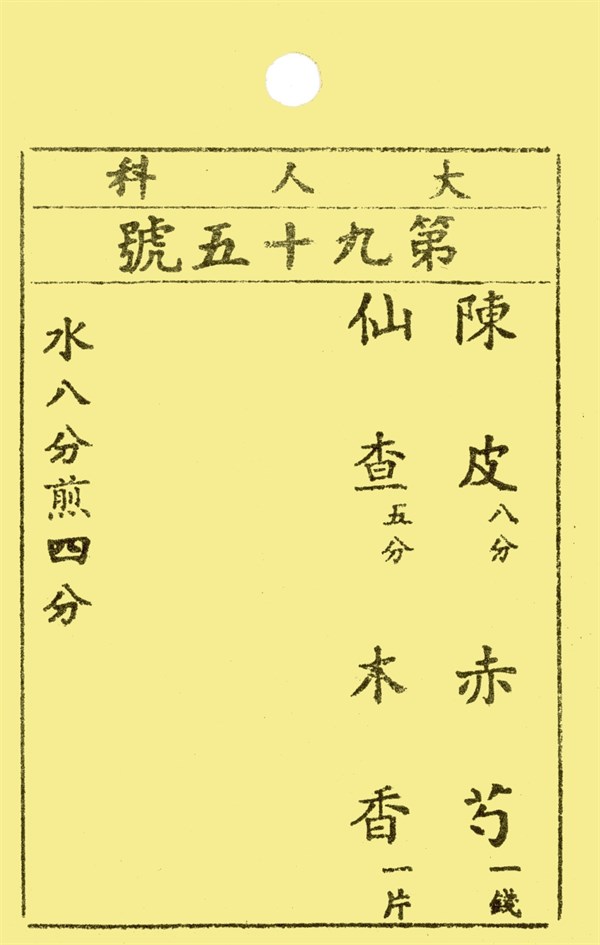 大人科
第九十五號
陳皮八分 赤芍一錢
仙查五分 木香一片
水八分煎四分